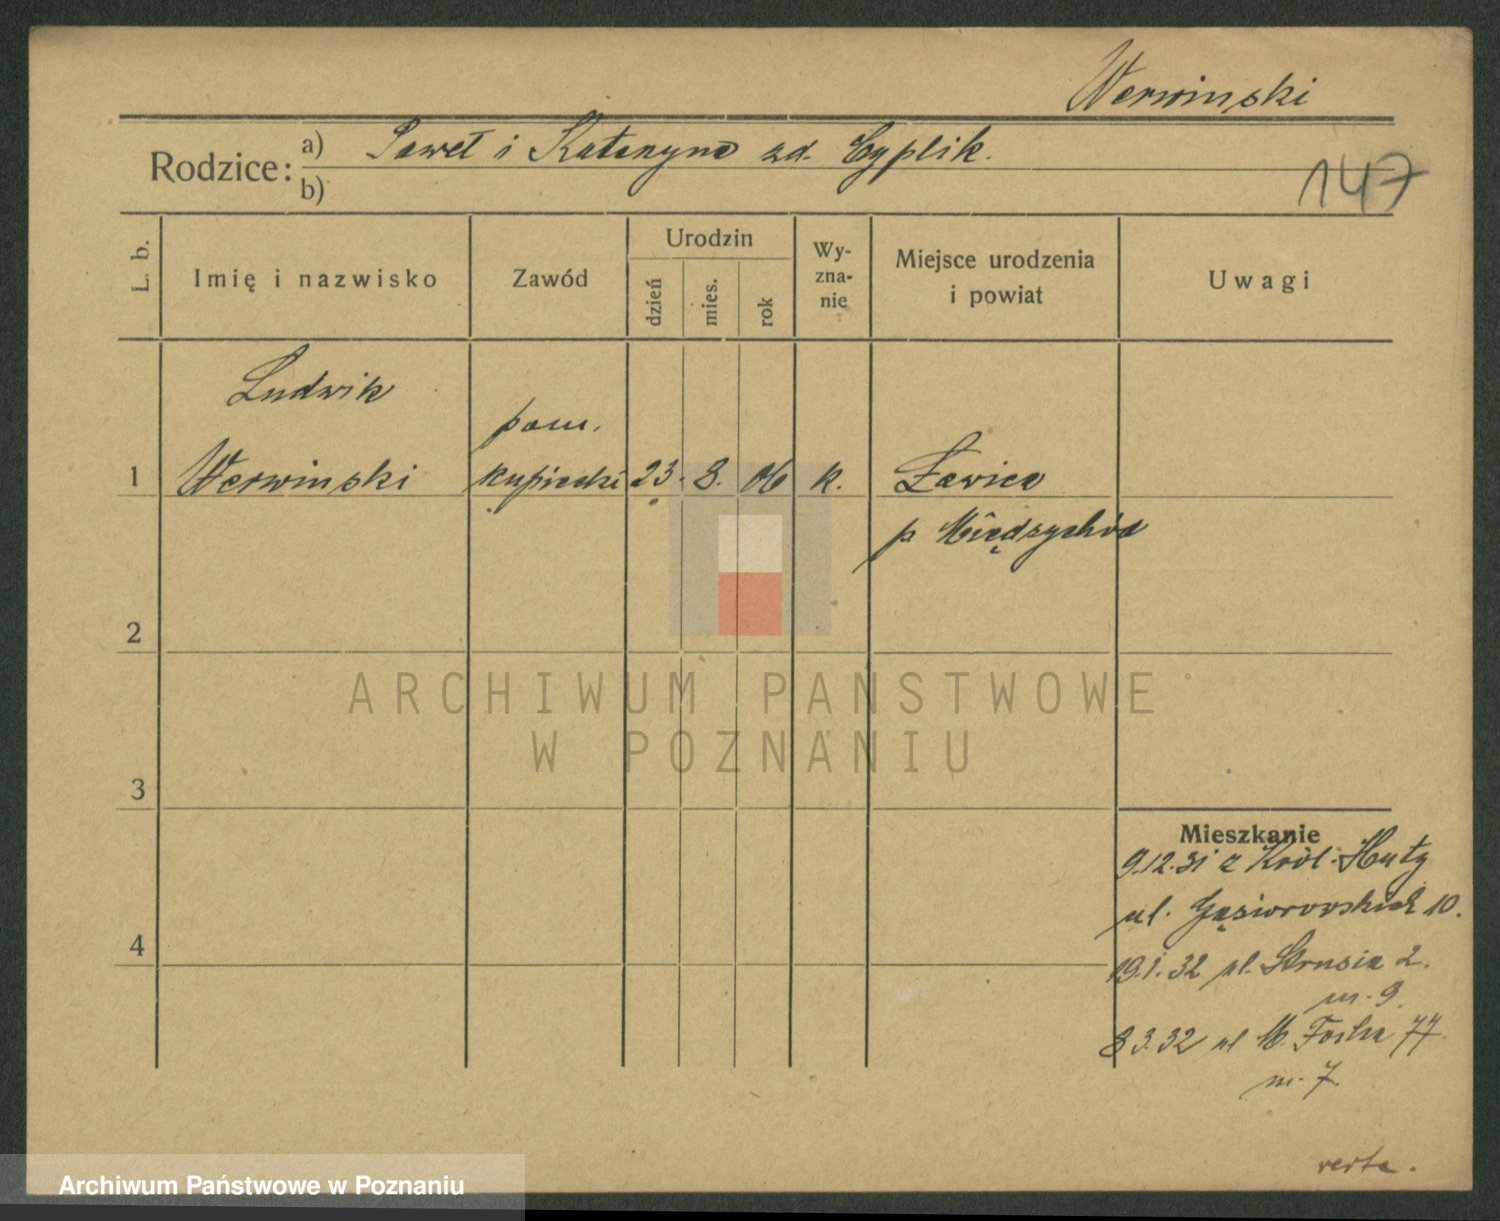 Werwinski
Rodzice:
a) Paweł i Katarzyna zd. Cyplik.
b)
147
L. b.
Imię i nazwisko
Zawód
Urodzin
dzień
mies.
rok
Wy-
zna-
nie
Miejsce urodzenia
i powiat
Uwagi
Ludwik
pom.
1 Werwinski kupiecki 23. 8. 06 k. Ławica
p Międzychód
2
3
4
Mieszkanie
9.12.31 z Król. Huty
ul. Gąsiorowskich 10.
19.1.32 ul. Strusia 2.
m. 9.
8 3.32 ul M. Focha 77
m. 7.
verte.
ARCHIWUM PAŃSTWOWE
W POZNANIU
Archiwum Państwowe w Poznaniu